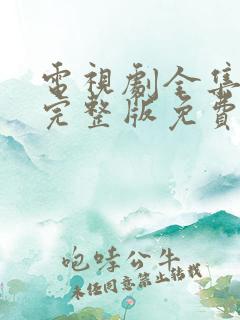 電視劇全集
完整版免費
咆哮公牛
未經同意禁止轉載